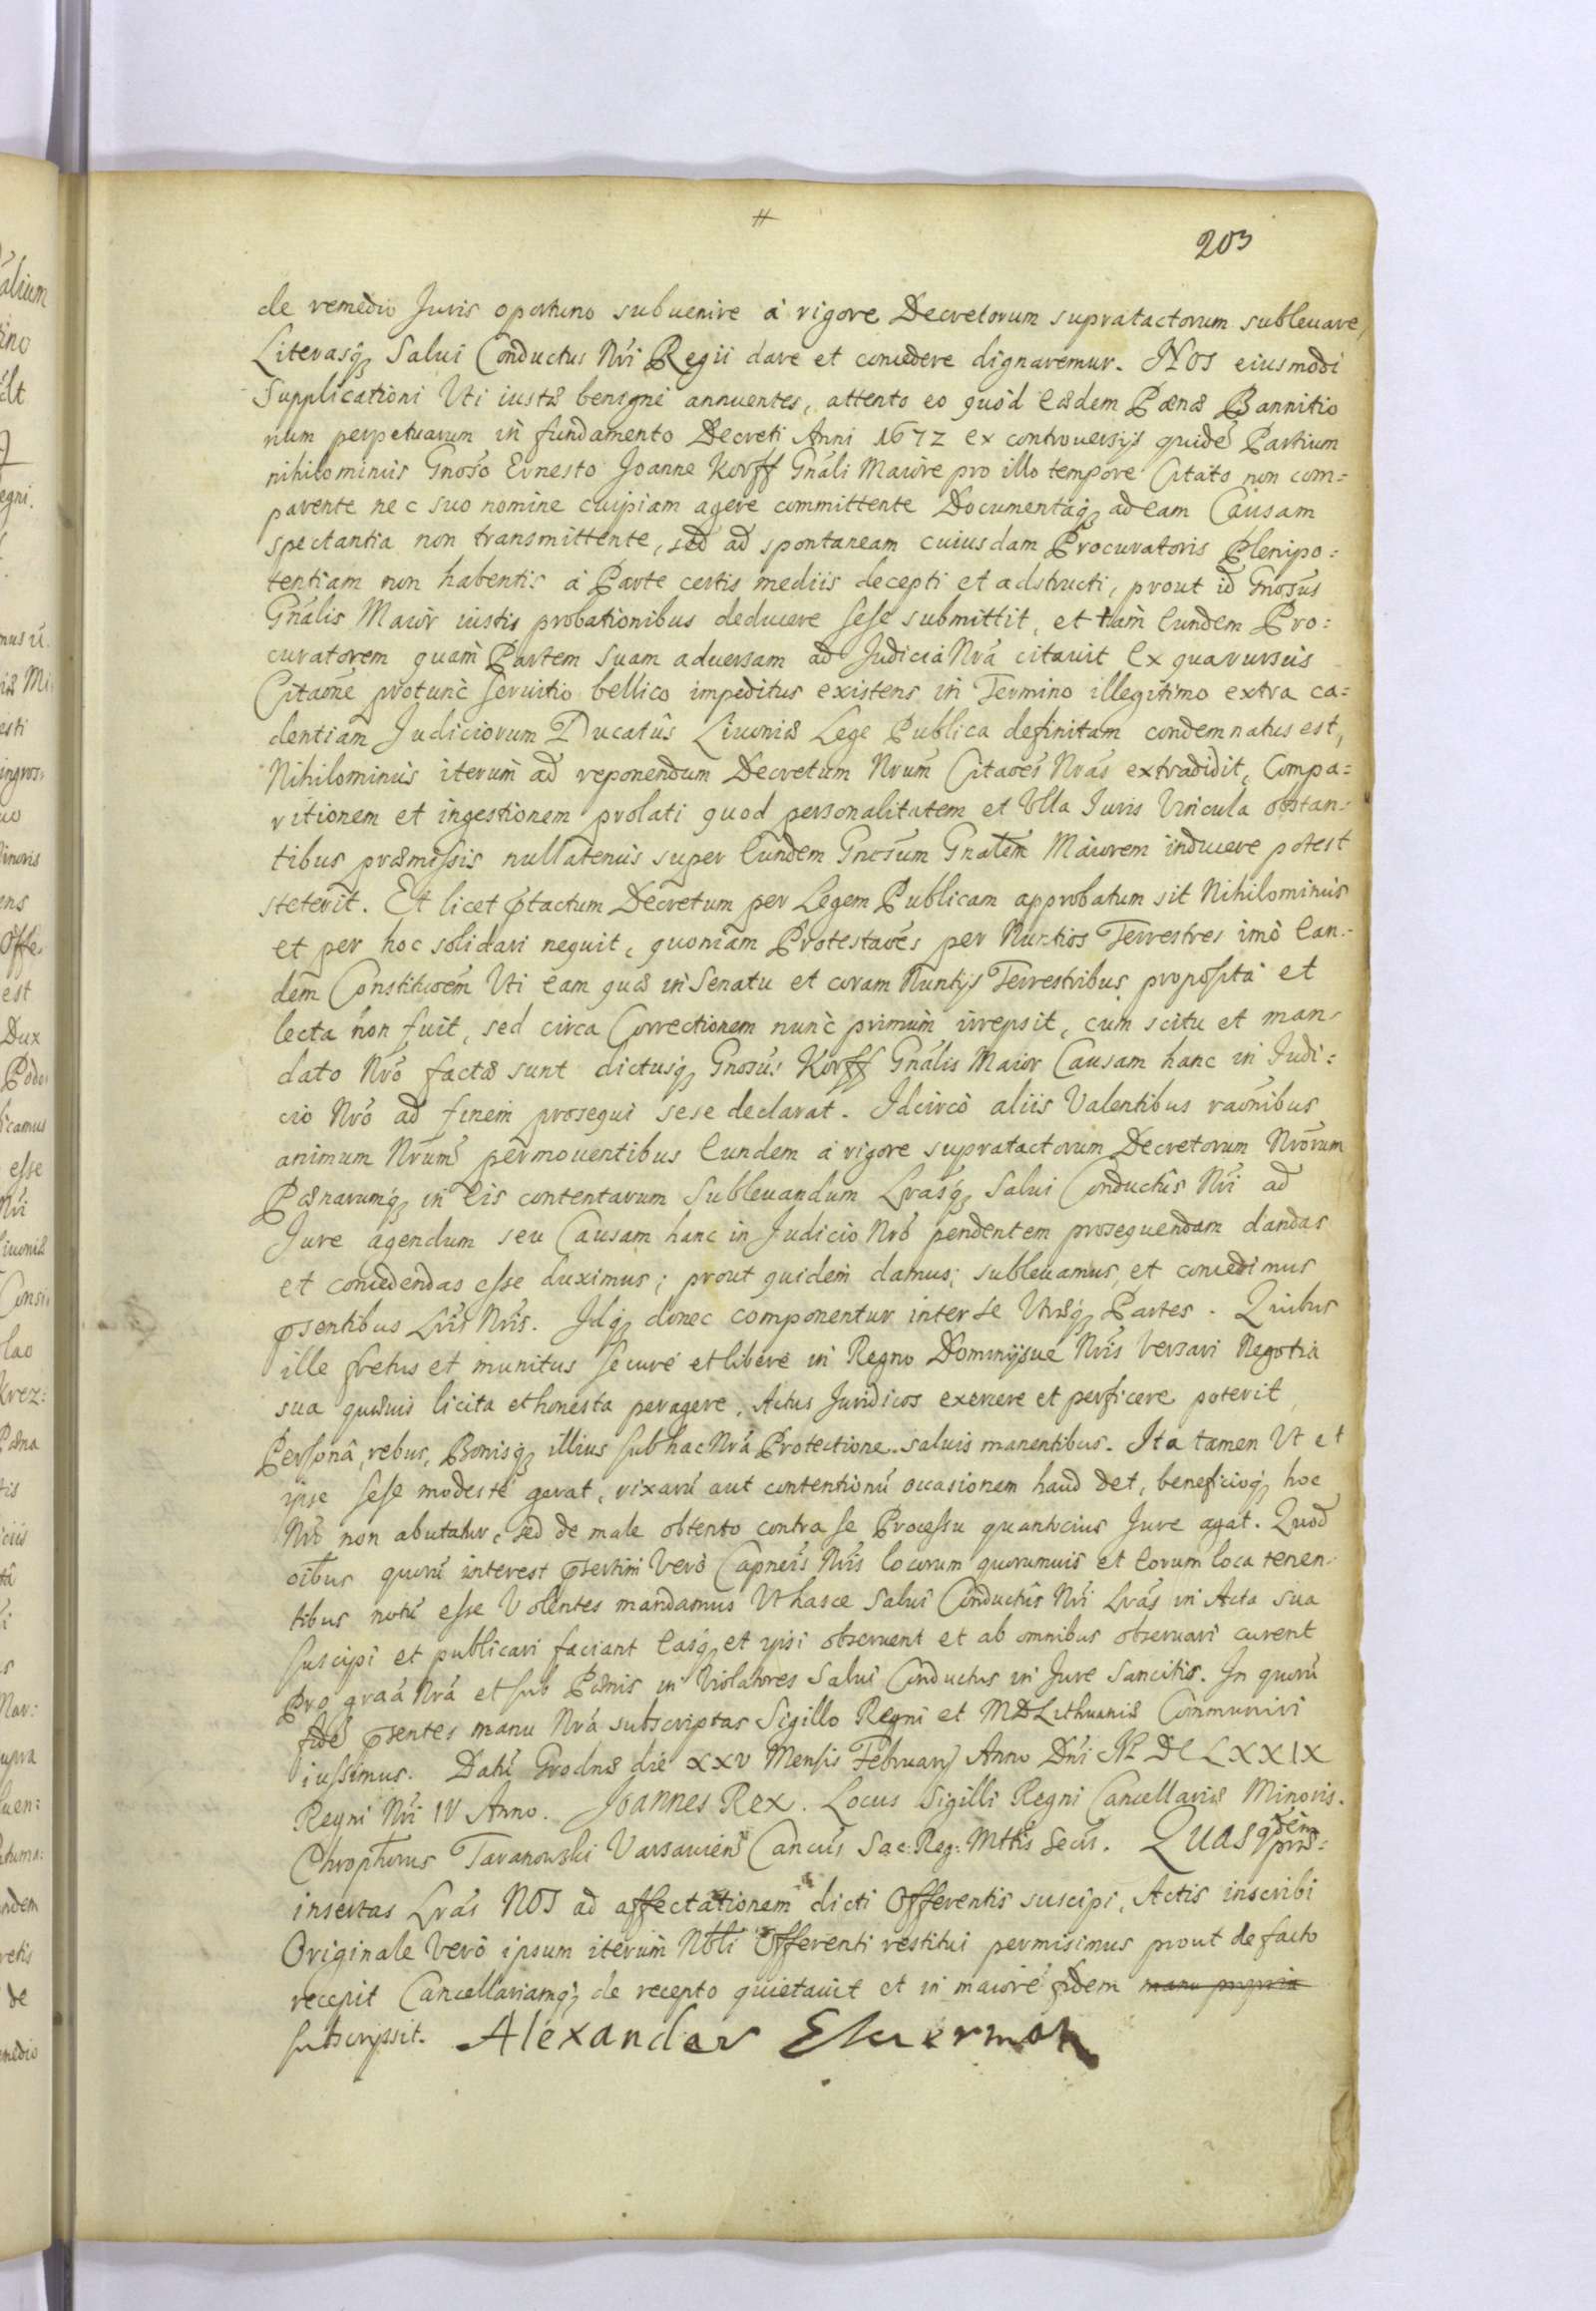 203
de remedio Juris oportuno subuenire à rigore Decretorum supratactorum subleuare,
Literasq3 Salui Conductus Nri Regii dare et concedere dignaremur. NOS eiusmodi
Supplicationi Uti iustæ benignè annuentes, attento eo quòd eædem Pænæ Bannitio
num perpetuarum in fundamento Decreti Anni 1672 ex controuersijs quidē Partium
nihilominus Gnoso Ernesto Joanne Korff Gnáli Maiore pro illo tempore Citato non com=
parente nec suo nomine cuipiam agere committente Documentaq3 ad eam Causam
spectantia non transmittente, sed ad spontaneam cuiusdam Procuratoris Plenipo=
tentiam non habentis à Parte certis mediis decepti et adstructi, prout id Gnosus
Gnális Maior iustis probationibus deducere sese submittit, et tam eundem Pro=
curatorem quàm Partem suam aduersam ad Judicia Nrá citauit ex qua rursus
Citaōne protunc seruitio bellico impeditus existens in Termino illegitimo extra ca=
dentiam Judiciorum Ducatûs Liuoniæ Lege Publica definitam condemnatus est,
Nihilominus iterum ad reponendum Decretum Nrum Citaōes Nrás extradidit, Compa=
ritionem et ingestionem prolati quod personalitatem et Ulla Juris Vincula obstan-
tibus præmissis nullatenus super eundem Gnosum Gnalem Maiorem inducere potest
steterit. Et licet ptactum Decretum per Legem Publicam approbatum sit Nihilominus
et per hoc solidari nequit, quoniam Protestaōes per Nuntios Terrestres imò ean-
dem Constituōem Uti eam quæ in Senatu et coram Nuntijs Terrestribus proposita et
lecta non fuit, sed circa Correctionem nunc primum irrepsit, cum scitu et man-
dato Nro factæ sunt dictusq3 Gnosus Korff Gnális Maior Causam hanc in Judi=
cio Nro ad finem prosequi sese declarat. Idcircò aliis Valentibus raōnibus
animum Nrum permouentibus eundem à rigore supratactorum Decretorum Nrorum
Pænarumq3 in eis contentarum subleuandum Lrasq3 Salui Conductûs Nri ad
Jure agendum seu Causam hanc in Judicio Nro pendentem prosequendam dandas
et concedendas esse duximus; prout quidem damus, subleuamus, et concedimus
psentibus Lris Nris. Idq3 donec componentur inter se Utræq3 Partes. Quibus
ille fretus et munitus securè et liberè in Regno Dominijsue Nris Versari Negotia
sua quæuis licita et honesta peragere, Actus Juridicos exercere et perficere poterit,
Personâ, rebus, Bonisq3 illius sub hac Nrá Protectione saluis manentibus. Ita tamen Ut et
ipse sese modestè gerat, rixarū aut contentionū occasionem haud det, beneficioq3 hoc
Nro non abutatur, sed de male obtento contra se Processu quantocius Jure agat. Quod
oībus quorū interest psertim Verò Capneis Nris locorum quorumuis et eorum loca tenen-
tibus notū esse Volentes mandamus Ut hasce Salui Conductûs Nri Lrás in Acta sua
suscipi et publicari faciant easq3 et ipsi obseruent et ab omnibus obseruari curent
Pro graá Nrá et sub Pænis in Violatores Salui Conductus in Jure Sancitis. In quorū
fidē psentes manu Nrá subscriptas Sigillo Regni et MDLithuaniæ Communiri
iussimus. Datū Grodnæ die XXV Mensis Februarij Anno Dni MDCLXXIX
Regni Nri IV Anno. Joannes Rex. Locus Sigilli Regni Cancellariæ Minoris.
Chrophorus Taranowski Varsauiens Cancus Sac: Reg: Mttis Secus. Quas qdem præ=
insertas Lrás NOS ad affectationem dicti Offerentis suscipi, Actis inscribi
Originale Verò ipsum iterum Nbli Offerenti restitui permisimus prout de facto
recepit Cancellariamq3 de recepto quietauit et in maiorē fidem manu propria
subscripsit. Alexander Ekierman